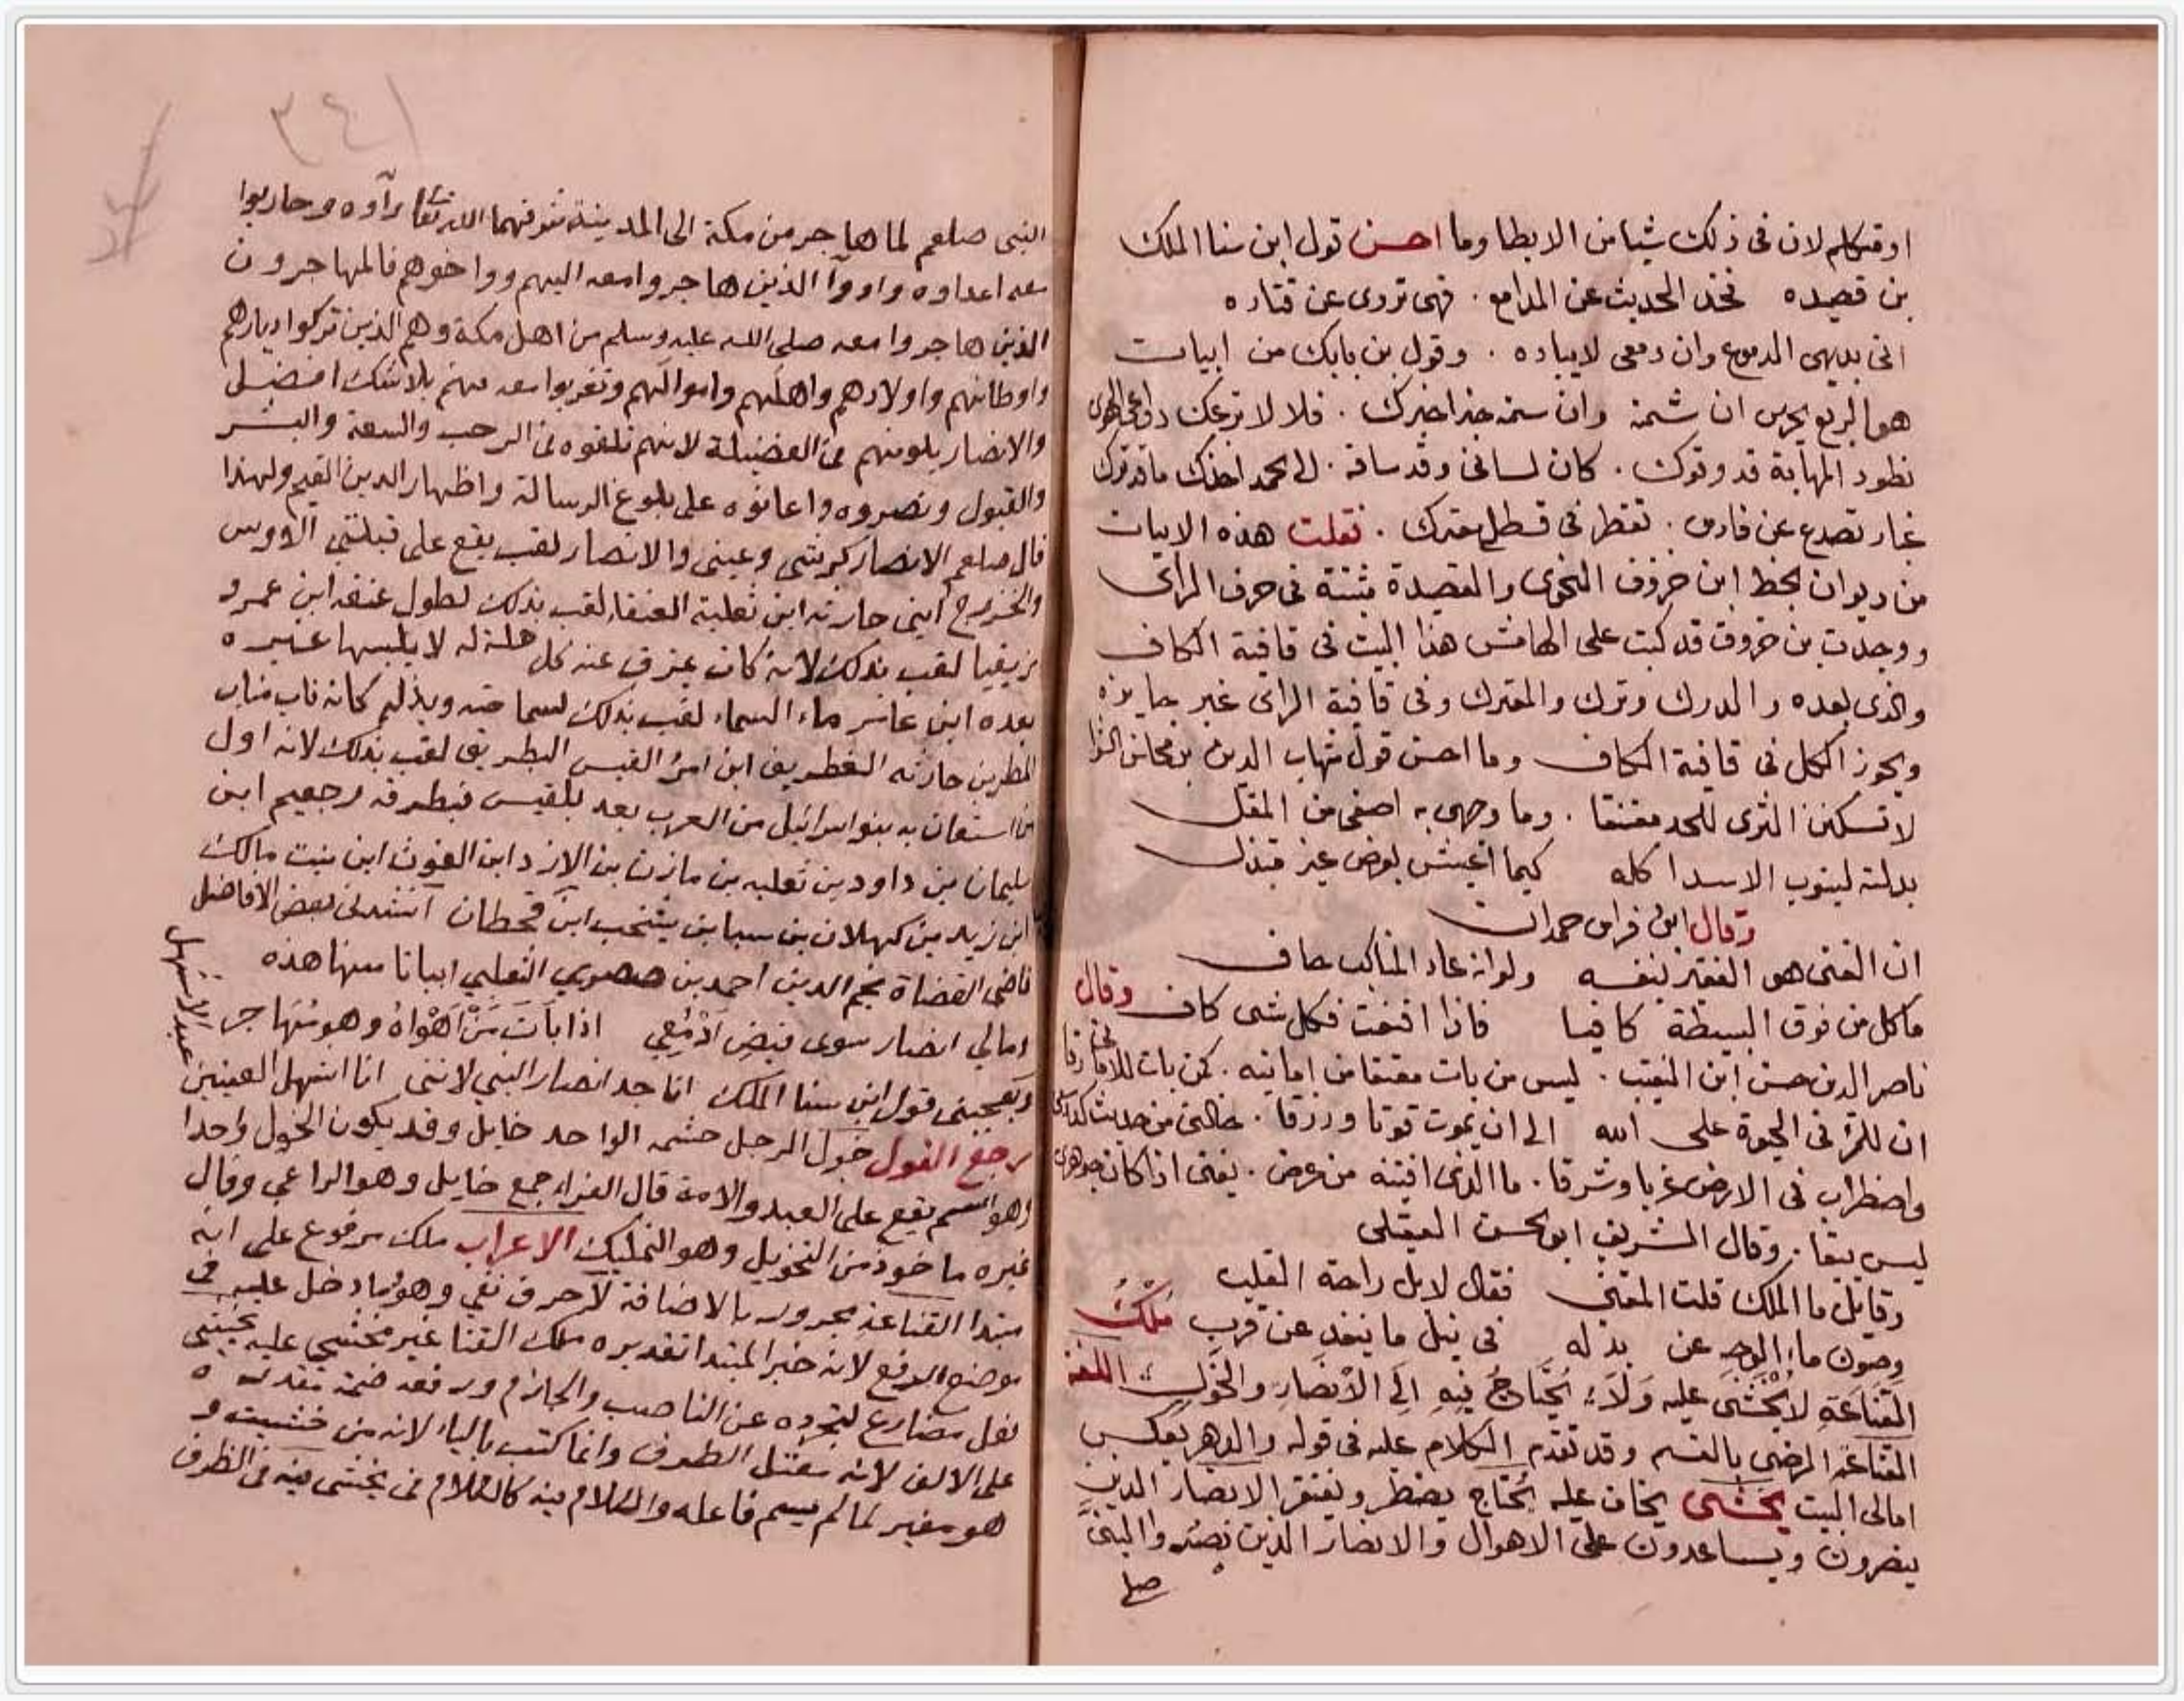 او قتكلم لان فى ذلك شيا من الابطا وما احسن قول ابن سنا الملك
من قصيده فخذ الحديث عن المدامع . فهى تروى عن قتاده
انى بديهى الدموع وان دمعى لا بباده . وقول بن بابك من ابيات
هو الربع يحرس ان شمته وان سمته خبرا خبرك . فلا لا ترعك دواعى الهوى
نطود المهابة قد وتوك . كان لسانى وقد ساقه . الى الحمد
غار تصدع عن فارس . تقطر فى قسطل معترك . نقلت هذه الابيات
من ديوان بخط ابن خروف النحوى والقصيدة مثبتة فى حرف الراى
ووجدت بن خروف قد كتب على الهامش هذا البيت فى قافية الكاف
والذى بعده والدرك وترك والمعترك وفى قافية الراى غير جايزه
ويجوز الكل فى قافية الكاف وما احسن قول شهاب الدين بن محاسن الشوا
لا تسكنن الثرى للحد معتنقا . وما وجهى به اصفى من المقل
بدلته لينوب الاسد اكله كيما اعيش بعرض غير مبتذل
وقال ابن فراس حمدان
ان الغنى هو الفقير بنفسه ولو انه عار المناكب حاف
ما كل من فوق البسيطة كافيا فاذا اقنعت فكل شى كاف وقال
ناصر الدين حسن ابن النقيب . ليس من بات معتقا من امانيه . كمن بات للامانى رقا
ان للمرء فى الحيوة على الله الى ان يموت قوتا ورزقا . خالنى من حديث
واضطراب فى الارض غربا وشرقا . ما الذى افيته من عرض . يفنى اذا كان جوهرى
ليس يبقا . وقال الشريف ابو الحسن العقيلى
وقايل ما الملك قلت الغنى فقال لا بل راحة القلب
وصون ماء الوجه عن بذله فى نيل ما ينفد عن قرب مُلْكُ
القَنَاعَةِ لا يُخْشَى عليه وَلَا يُحْتَاجُ فيه اِلَى الأَنْصَارِ والخَوَلِ اللغة
القناعة الرضى بالقسم وقد تقدم الكلام عليه فى قوله والدهر يعكس
امالى البيت يخشى يخاف عليه يُحتاج يضطر ويفتقر الانصار الذين
ينصرون ويساعدون على الاهوال والانصار الذين نصروا النبى
صلـ
٣٤١
النبى صلعم لما هاجر من مكة الى المدينة شرفهما الله تعا وآوه وحاربوا
معه اعداوه واووا الذين هاجروا معه اليهم وواخوهم فالمهاجرون
الذين هاجروا معه صلى الله عليه وسلم من اهل مكة وهم الذين تركوا ديارهم
واوطانهم واولادهم واهلهم واموالهم وتغربوا معه منهم بلا شك افضل
والانصار يلونهم فى الفضيلة لانهم تلقوه فى الرحب والسعة والبشر
والقبول ونصروه واعانوه على بلوغ الرسالة واظهار الدين القيم ولهذا
قال صلعم الانصار كرشى وعيبتى والانصار لقب يقع على قبيلتي الاوس
والخزرج ابنى حارثه ابن ثعلبة العنقا لقب بذلك لطول عنقه ابن عمرو
مزيقيا لقب بذلك لانه كان يمزق عنه كل حلة له لا يلبسها غيره
بعده ابن عامر ماء السماء لقب بذلك لسماحته وبذله كانه ناب مناب
المطر بن حارثه الغطريف ابن امرئ القيس البطريق لقب بذلك لانه اول
من استعان به بنو اسرائيل من العرب بعد بلقيس فبطرقه رجعيم ابن
سليمان بن داود بن ثعلبه بن مازن بن الازد ابن الغوث ابن نبت مالك
ابن زيد بن كهلان بن سبا بن يشجب ابن قحطان انشدنى بعض الافاضل
قاضى القضاة نجم الدين احمد بن صصرى الثعلبى ابياتا منها هذه
ومالي انصار سوى فيض اَدْمُعِي اذا بَاتَ مَنْ اَهْوَاهُ وهو مُهَاجر
ويعجبنى قول ابن سنا الملك انا جد انصار النبي لاننى انا اشهل العينين
عبد الاشهل
رجع القول خول الرجل حشمه الواحد خايل وقد يكون الخول واحدا
وهو اسم يقع على العبد والامة قال الفراء جمع خايل وهو الراعي وقال
غيره ماخوذ من التخويل وهو التمليك الاعراب ملك مرفوع على انه
مبتدا القناعة مجرور بالاضافة لا حرف نفي وهو وما دخل عليه فى
موضع الرفع لانه خبر المبتدا تقديره ملك القنا غير مخشى عليه يخشى
فعل مضارع لتجرده عن الناصب والجازم ورفعه ضمة مقدره
على الالف لانه معتل الطرف وانما كتب بالياء لانه من خشيت و
هو مغير لما لم يسم فاعله والكلام فيه كالكلام فى يخشى فيه فى الظرف